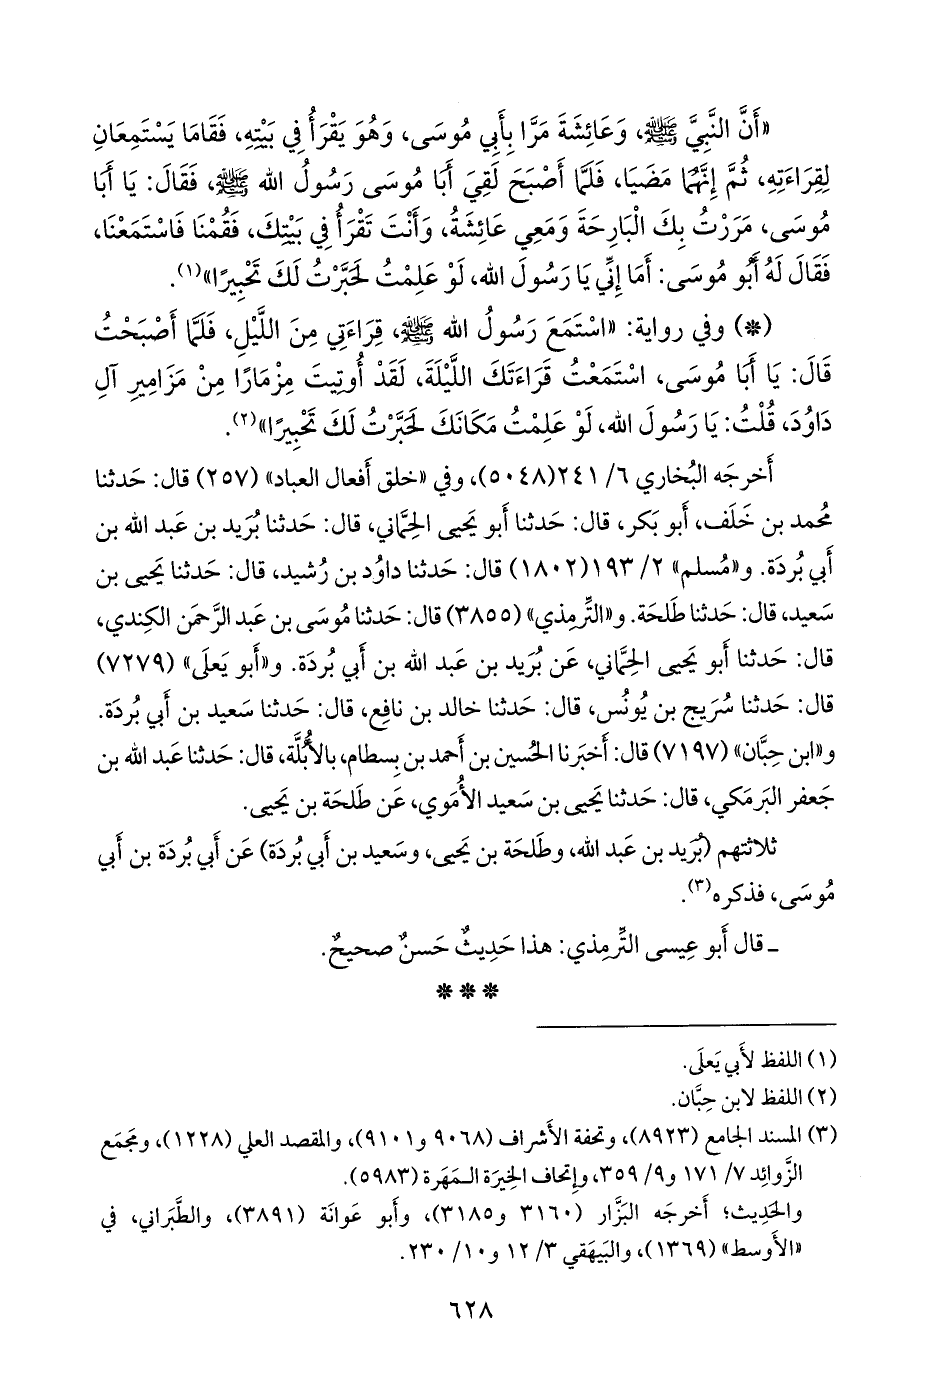 «أَنَّ النَّبِيَّ ﷺ، وَعَائِشَةَ مَرَّا بِأَبِي مُوسَى، وَهُوَ يَقْرَأُ فِي بَيْتِهِ، فَقَامَا يَسْتَمِعَانِ
لِقِرَاءَتِهِ، ثُمَّ إِنَّهُمَا مَضَيَا، فَلَمَّا أَصْبَحَ لَقِيَ أَبَا مُوسَى رَسُولُ الله ﷺ، فَقَالَ: يَا أَبَا
مُوسَى، مَرَرْتُ بِكَ الْبَارِحَةَ وَمَعِي عَائِشَةُ، وَأَنْتَ تَقْرَأُ فِي بَيْتِكَ، فَقُمْنَا فَاسْتَمَعْنَا،
فَقَالَ لَهُ أَبُو مُوسَى: أَمَا إِنِّي يَا رَسُولَ الله، لَوْ عَلِمْتُ لَحَبَّرْتُ لَكَ تَحْبِيرًا»(١).
(*) وفي رواية: «اسْتَمَعَ رَسُولُ الله ﷺ، قِرَاءَتِي مِنَ اللَّيْلِ، فَلَمَّا أَصْبَحْتُ
قَالَ: يَا أَبَا مُوسَى، اسْتَمَعْتُ قِرَاءَتَكَ اللَّيْلَةَ، لَقَدْ أُوتِيتَ مِزْمَارًا مِنْ مَزَامِيرِ آلِ
دَاوُدَ، قُلْتُ: يَا رَسُولَ الله، لَوْ عَلِمْتُ مَكَانَكَ لَحَبَّرْتُ لَكَ تَحْبِيرًا»(٢).
أَخرجَه البُخاري ٦/ ٢٤١(٥٠٤٨)، وفي «خلق أَفعال العباد» (٢٥٧) قال: حَدثنا
مُحمد بن خَلَف، أَبو بَكر، قال: حَدثنا أَبو يَحيى الحِمَّاني، قال: حَدثنا بُرَيد بن عَبد الله بن
أَبي بُردَة. و«مُسلم» ٢/ ١٩٣(١٨٠٢) قال: حَدثنا داوُد بن رُشيد، قال: حَدثنا يَحيى بن
سَعيد، قال: حَدثنا طَلحَة. و«التِّرمِذي» (٣٨٥٥) قال: حَدثنا مُوسَى بن عَبد الرَّحمَن الكِندي،
قال: حَدثنا أَبو يَحيى الحِمَّاني، عَن بُرَيد بن عَبد الله بن أَبي بُردَة. و«أَبو يَعلَى» (٧٢٧٩)
قال: حَدثنا سُرَيج بن يُونُس، قال: حَدثنا خالد بن نافِع، قال: حَدثنا سَعيد بن أَبي بُردَة.
و«ابن حِبَّان» (٧١٩٧) قال: أَخبَرنا الحُسين بن أَحمد بن بِسطام، بالأُبُلَّة، قال: حَدثنا عَبد الله بن
جَعفر البَرمَكي، قال: حَدثنا يَحيى بن سَعيد الأُمَوي، عَن طَلحَة بن يَحيى.
ثلاثتهم (بُرَيد بن عَبد الله، وطَلحَة بن يَحيى، وسَعيد بن أَبي بُردَة) عَن أَبي بُردَة بن أَبي
مُوسَى، فذكره(٣).
ـ قال أَبو عِيسى التِّرمِذي: هذا حَدِيثٌ حَسنٌ صحيحٌ.
***
(١) اللفظ لأَبي يَعلَى.
(٢) اللفظ لابن حِبَّان.
(٣) المسند الجامع (٨٩٢٣)، وتحفة الأَشراف (٩٠٦٨ و٩١٠١)، والمقصد العلي (١٢٢٨)، ومَجمَع
الزَّوائِد ٧/ ١٧١ و٩/ ٣٥٩، وإتحاف الخِيرَة الـمَهَرة (٥٩٨٣).
والحَدِيث؛ أَخرجَه البَزَّار (٣١٦٠ و٣١٨٥)، وأَبو عَوانَة (٣٨٩١)، والطَّبَراني، في
«الأَوسط» (١٣٦٩)، والبَيهَقي ٣/ ١٢ و١٠/ ٢٣٠.
٦٢٨